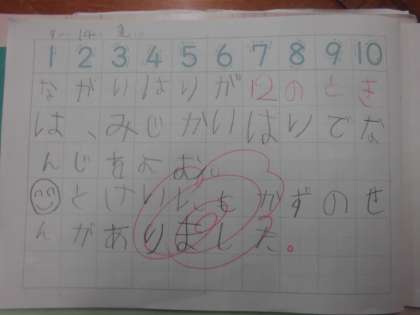 1 2 3 4 5 6 7 8 9 10
ながいはりが12のとき
は、みじかいはりでな
んじをよむ。
とけいにもかずのせ
んがありました。